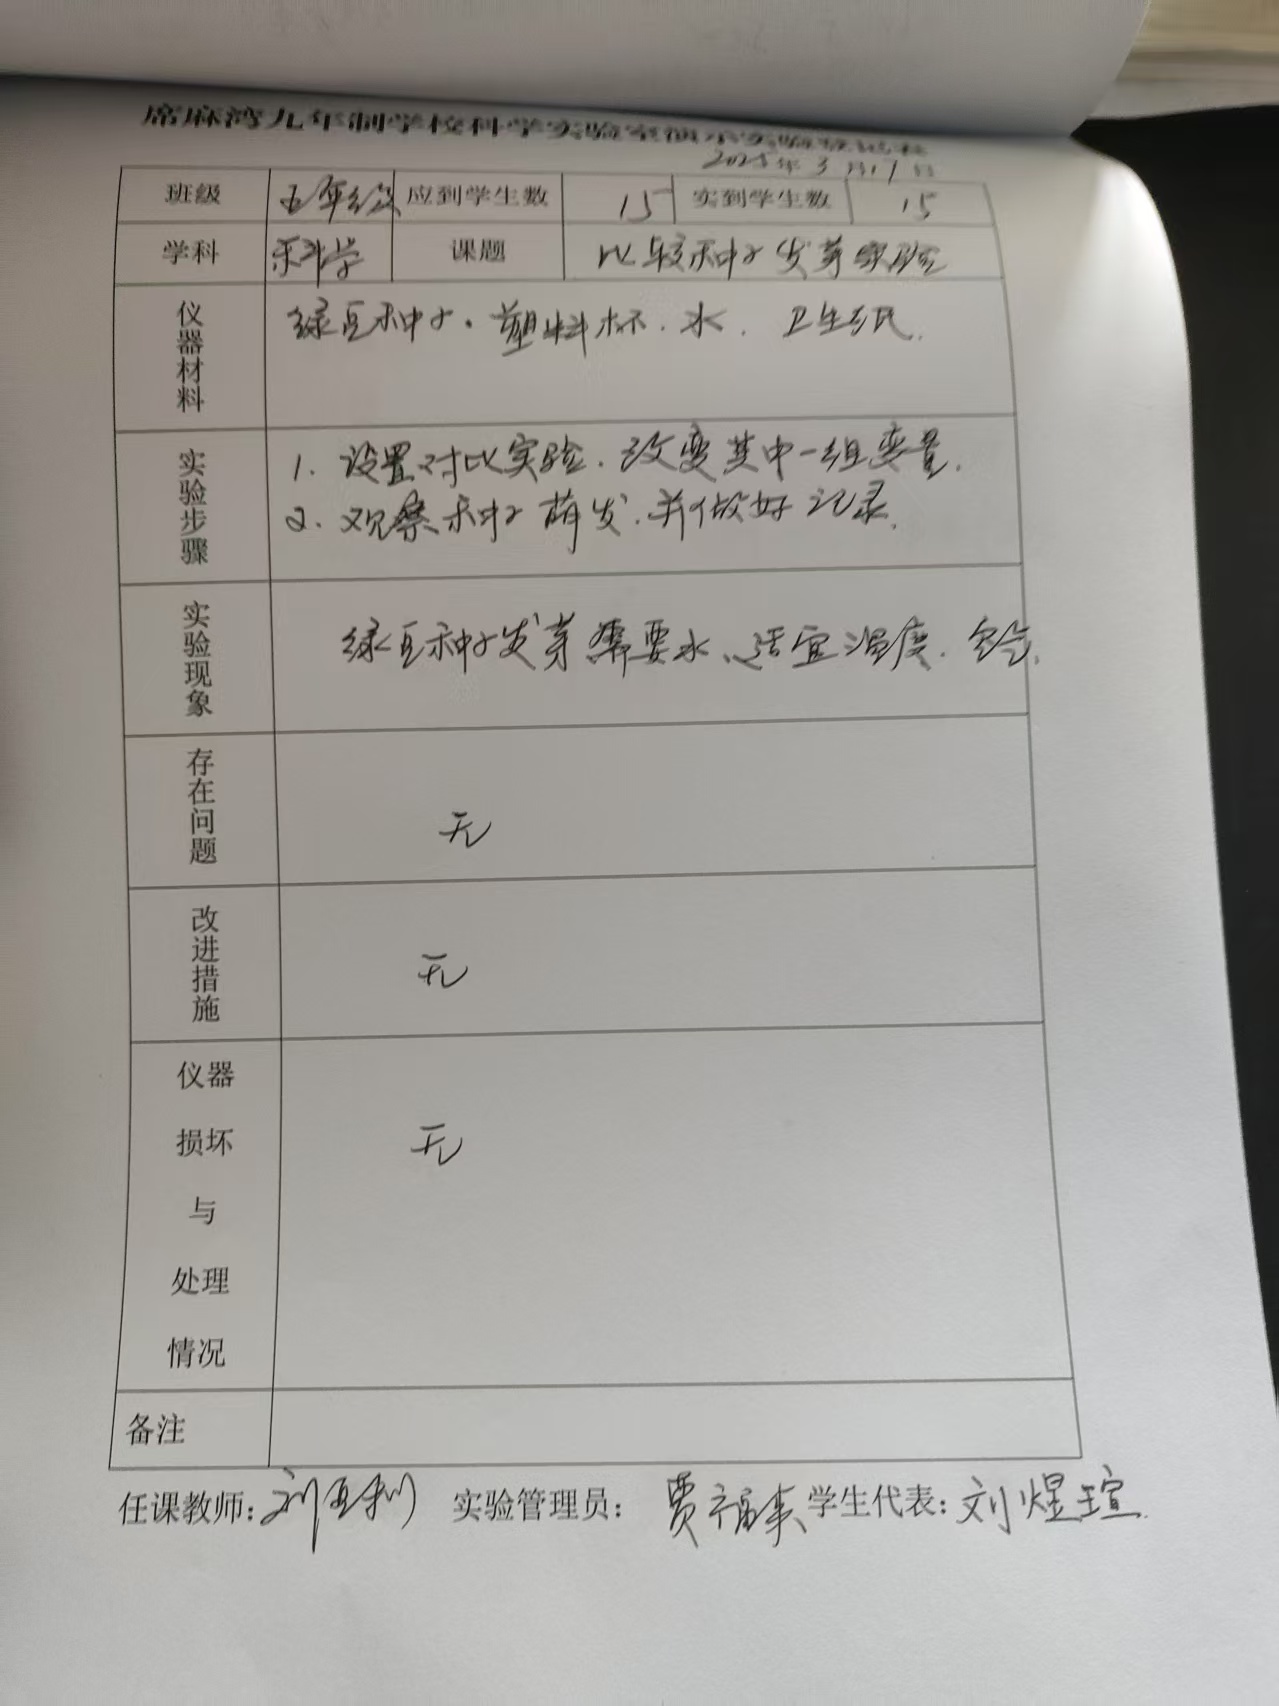 席麻湾九年制学校科学实验室演示实验登记表
2025年3月17日
班级 五年级 应到学生数 15 实到学生数 15
学科 科学 课题 比较种子发芽实验
仪器材料 绿豆种子．塑料杯．水．卫生纸．
实验步骤 1．设置对比实验．改变其中一组变量．
2．观察种子萌发．并做好记录．
实验现象 绿豆种子发芽需要水、适宜温度．空气．
存在问题 无
改进措施 无
仪器损坏与处理情况 无
备注
任课教师：刘亚利 实验管理员：贾福来 学生代表：刘煜瑄